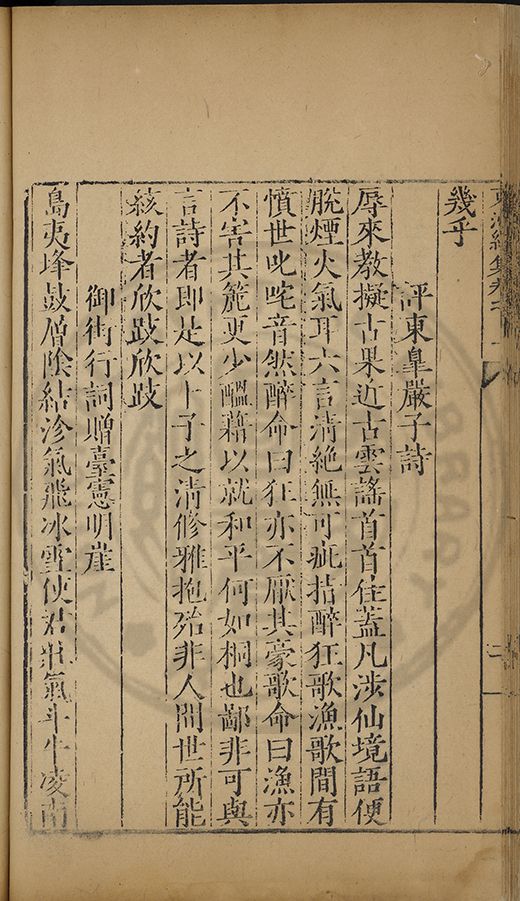 幾乎
評東皐嚴子詩
辱來教擬古果近古雲謠首首佳蓋凡涉仙境語便
脫煙火氣耳六言淸絶無可疵掊醉狂歌漁歌間有
憤世叱咤音然醉命曰狂亦不厭其豪歌命曰漁亦
不害其麄更少醞藉以就和平何如桐也鄙非可與
言詩者即是以卜子之淸修雅抱殆非人間世所能
緣約者欣跂欣跂
御街行詞贈臺憲明崖
島夷烽鼓層陰結沴氣飛冰雪使君壯氣斗牛凌南